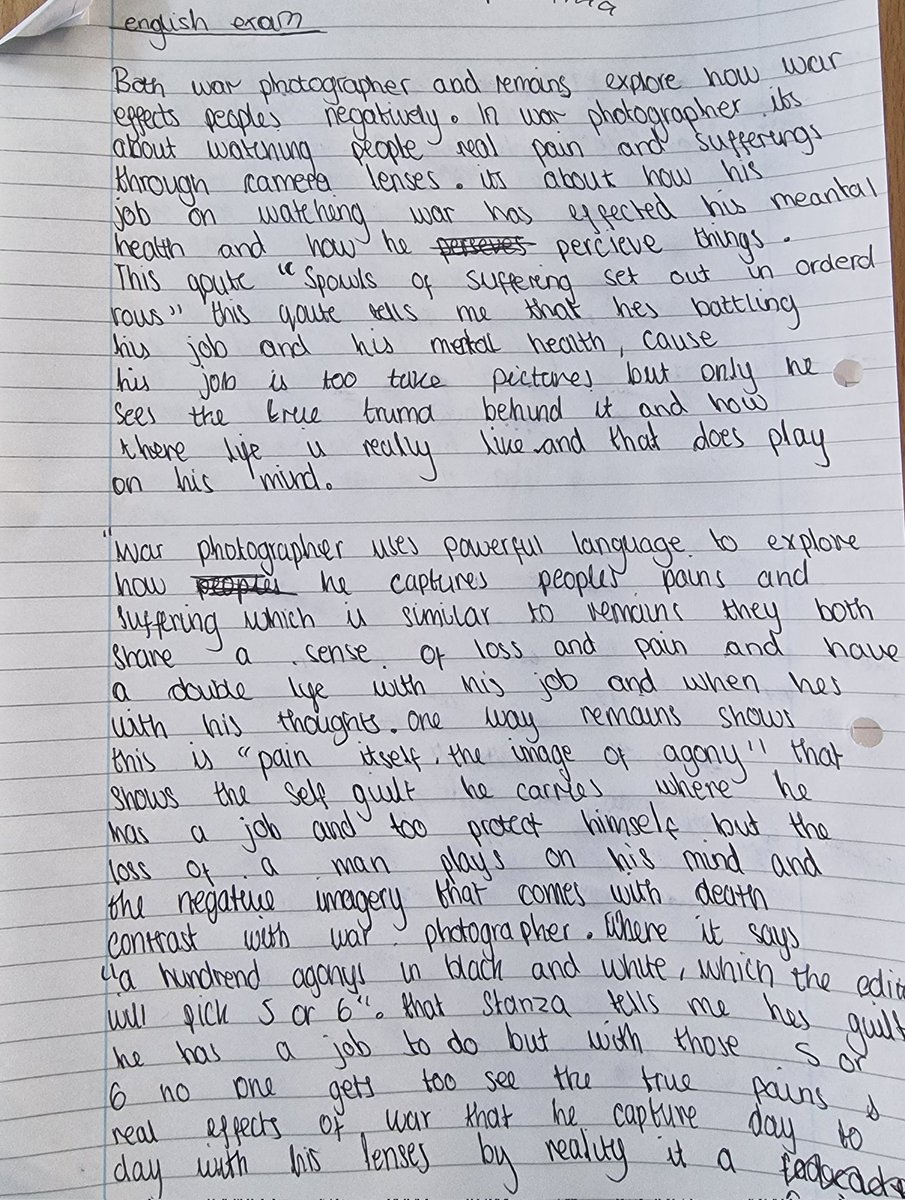 english exam
Both war photographer and remains explore how war
effects peoples negatively. In war photographer its
about watching people real pain and sufferings
through camera lenses. its about how his
job on watching war has effected his meantal
health and how he perseves percieve things.
This qoute "Spowls of suffering set out in orderd
rows" this qoute tells me that hes battling
his job and his mental health, cause
his job is too take pictures but only he
sees the true truma behind it and how
there life is really like and that does play
on his mind.
"War photographer uses powerful language to explore
how peoples he captures peoples pains and
suffering which is similar to remains they both
share a sense of loss and pain and have
a double life with his job and when hes
with his thoughts. one way remains shows
this is "pain itself, the image of agony" that
shows the self guilt he carries where he
has a job and too protect himself but the
loss of a man plays on his mind and
the negative imagery that comes with death
contrast with war photographer. Where it says
"a hundrend agonys in black and white, which the edit
will pick 5 or 6". that stanza tells me hes guilt
he has a job to do but with those 5 or
6 no one gets too see the true pains &
real effects of war that he capture day to
day with his lenses by reality it a